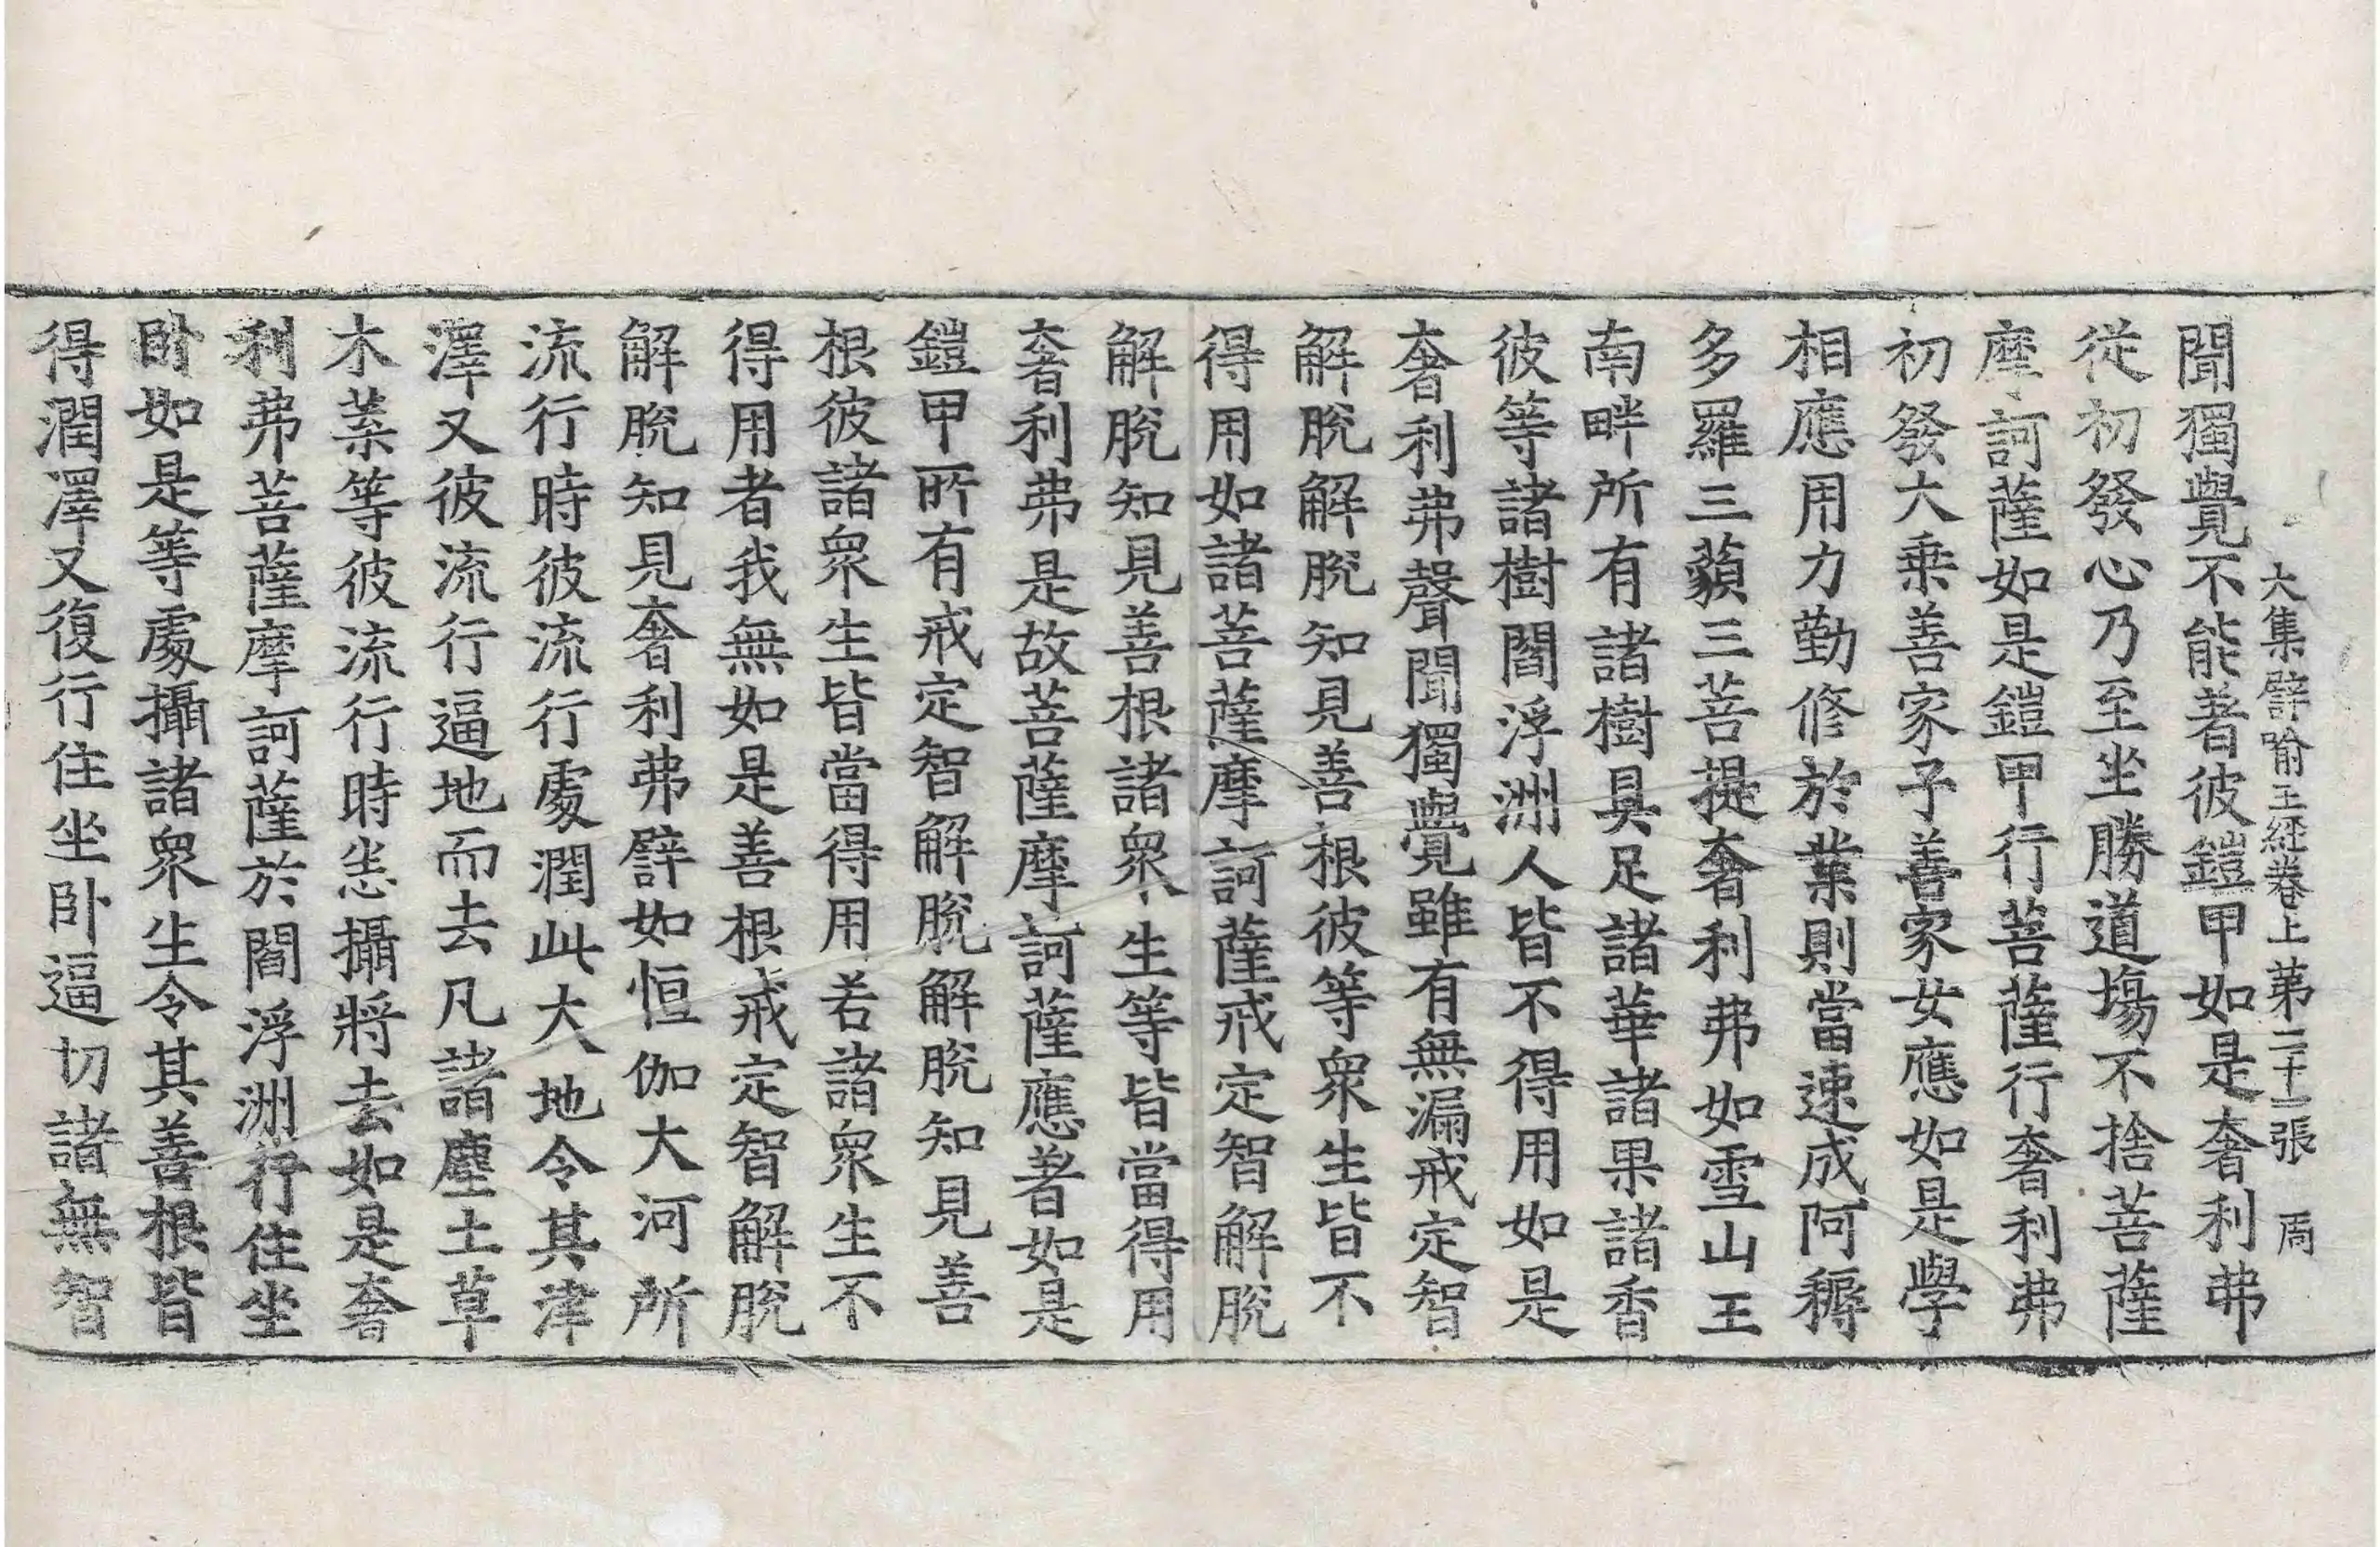 大集譬喻王経卷上第二十二張 周
聞獨覺不能著彼鎧甲如是奢利弗
從初發心乃至坐勝道場不捨菩薩
摩訶薩如是鎧甲行菩薩行奢利弗
初發大乗善家子善家女應如是學
相應用力勤修於業則當速成阿耨
多羅三藐三菩提奢利弗如雪山王
南畔所有諸樹具足諸華諸果諸香
彼等諸樹閻浮洲人皆不得用如是
奢利弗聲聞獨覺雖有無漏戒定智
解脫解脫知見善根彼等衆生皆不
得用如諸菩薩摩訶薩戒定智解脫
解脫知見善根諸衆生等皆當得用
奢利弗是故菩薩摩訶薩應著如是
鎧甲所有戒定智解脫解脫知見善
根彼諸衆生皆當得用若諸衆生不
得用者我無如是善根戒定智解脫
解脫知見奢利弗譬如恒伽大河所
流行時彼流行處潤此大地令其津
澤又彼流行逼地而去凡諸塵土草
木葉等彼流行時恙攝將去如是奢
利弗菩薩摩訶薩於閻浮洲行住坐
卧如是等處攝諸衆生令其善根皆
得潤澤又復行住坐卧逼切諸無智